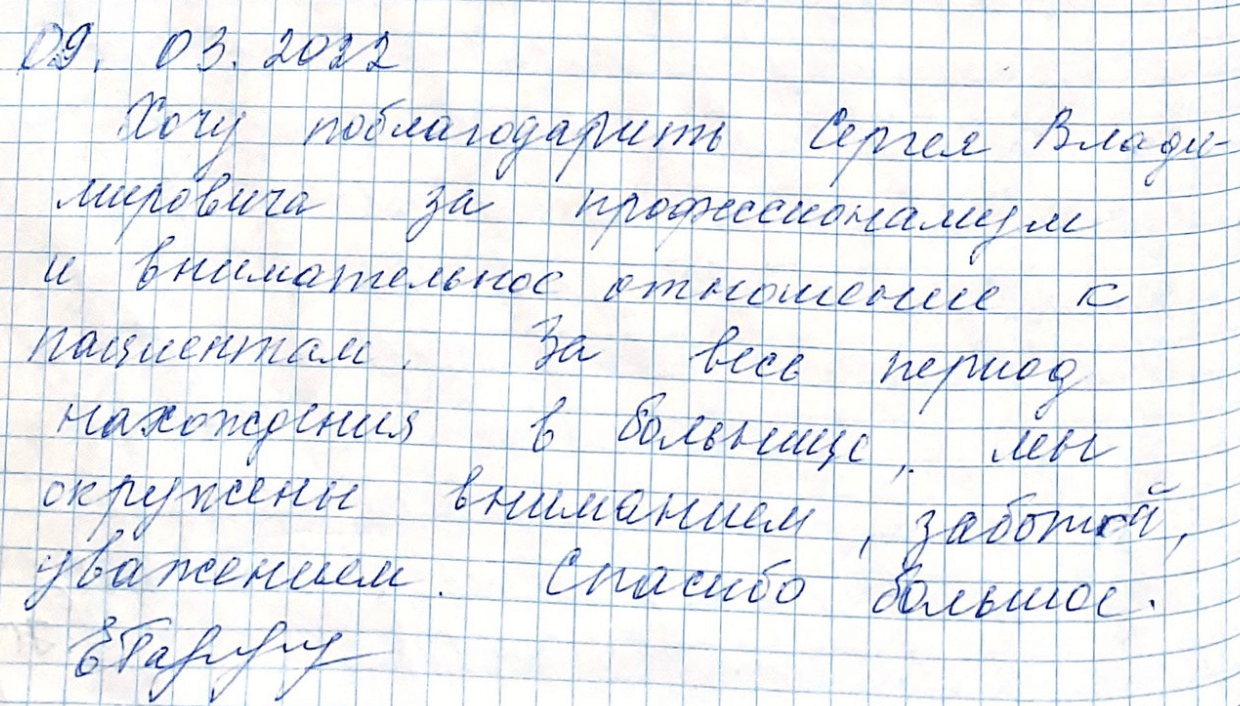 09. 03. 2022
Хочу поблагодарить Сергея Влади-
мировича за профессионализм
и внимательное отношение к
пациентам. За весь период
нахождения в больнице, мы
окружены вниманием, заботой,
уважением. Спасибо большое.